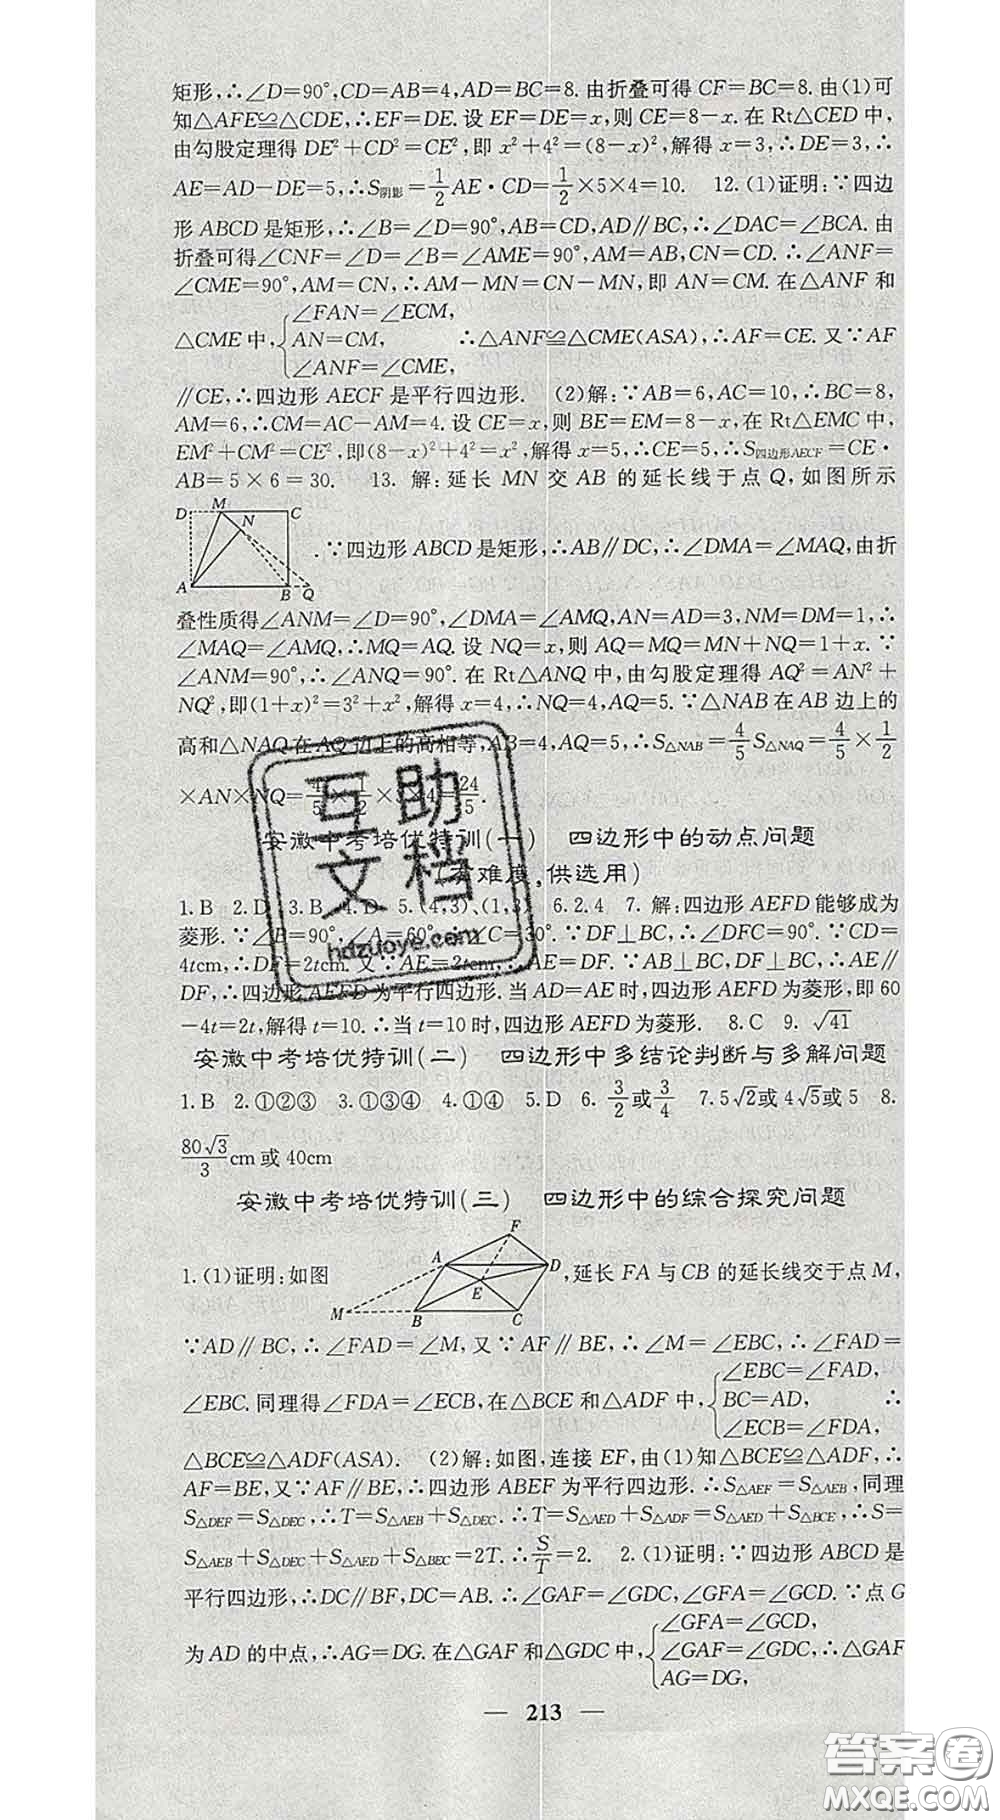 矩形,∴∠D=90°,CD=AB=4,AD=BC=8.由折叠可得CF=BC=8.由(1)可
知△AFE≌△CDE,∴EF=DE.设EF=DE=x,则CE=8-x.在Rt△CED中,
由勾股定理得DE²+CD²=CE²,即x²+4²=(8-x)²,解得x=3,∴DE=3,∴
AE=AD-DE=5,∴S阴影=1/2AE·CD=1/2×5×4=10. 12.(1)证明:∵四边
形ABCD是矩形,∴∠B=∠D=90°,AB=CD,AD∥BC,∴∠DAC=∠BCA.由
折叠可得∠CNF=∠D=∠B=∠AME=90°,AM=AB,CN=CD.∴∠ANF=
∠CME=90°,AM=CN,∴AM-MN=CN-MN,即AN=CM.在△ANF和
△CME中,{∠FAN=∠ECM,
AN=CM, ∴△ANF≌△CME(ASA),∴AF=CE.又∵AF
∠ANF=∠CME,
∥CE,∴四边形AECF是平行四边形. (2)解:∵AB=6,AC=10,∴BC=8,
AM=6,∴CM=AC-AM=4.设CE=x,则BE=EM=8-x,在Rt△EMC中,
EM²+CM²=CE²,即(8-x)²+4²=x²,解得x=5,∴CE=5,∴S四边形AECF=CE·
AB=5×6=30. 13. 解:延长MN交AB的延长线于点Q,如图所示
D M C
N
A B Q
.∵四边形ABCD是矩形,∴AB∥DC,∴∠DMA=∠MAQ,由折
叠性质得∠ANM=∠D=90°,∠DMA=∠AMQ,AN=AD=3,NM=DM=1,∴
∠MAQ=∠AMQ,∴MQ=AQ.设NQ=x,则AQ=MQ=MN+NQ=1+x.∵
∠ANM=90°,∴∠ANQ=90°.在Rt△ANQ中,由勾股定理得AQ²=AN²+
NQ²,即(1+x)²=3²+x²,解得x=4,∴NQ=4,AQ=5.∵△NAB在AB边上的
高和△NAQ在AQ边上的高相等,AB=4,AQ=5,∴S△NAB=4/5S△NAQ=4/5×1/2
×AN×NQ=4/5×1/2×3×4=24/5.
安徽中考培优特训(一) 四边形中的动点问题
(有难度,供选用)
1.B 2.D 3.B 4.D 5.(4,3)、(1,3) 6.2.4 7. 解:四边形AEFD能够成为
菱形.∵∠B=90°,∠A=60°,∴∠C=30°.∵DF⊥BC,∴∠DFC=90°.∵CD=
4tcm,∴DF=2tcm.又∵AE=2tcm,∴AE=DF.∵AB⊥BC,DF⊥BC,∴AE∥
DF,∴四边形AEFD为平行四边形.当AD=AE时,四边形AEFD为菱形,即60
-4t=2t,解得t=10.∴当t=10时,四边形AEFD为菱形. 8.C 9. √41
安徽中考培优特训(二) 四边形中多结论判断与多解问题
1.B 2.①②③ 3.①③④ 4.①④ 5.D 6. 3/2或3/4 7.5√2或4√5或5 8.
80√3/3cm或40cm
安徽中考培优特训(三) 四边形中的综合探究问题
F
A D
E
M B C
1.(1)证明:如图 ,延长FA与CB的延长线交于点M,
∵AD∥BC,∴∠FAD=∠M,又∵AF∥BE,∴∠M=∠EBC,∴∠FAD=
∠EBC.同理得∠FDA=∠ECB,在△BCE和△ADF中,{∠EBC=∠FAD,
BC=AD, ∴
∠ECB=∠FDA,
△BCE≌△ADF(ASA). (2)解:如图,连接EF,由(1)知△BCE≌△ADF,∴
AF=BE,又∵AF∥BE,∴四边形ABEF为平行四边形.∴S△AEF=S△AEB,同理
S△DEF=S△DEC,∴T=S△AEB+S△DEC.∴T=S△AED+S△ADF=S△AED+S△BCE,∴S=
S△AEB+S△DEC+S△AED+S△BEC=2T.∴S/T=2. 2.(1)证明:∵四边形ABCD是
平行四边形,∴DC∥BF,DC=AB.∴∠GAF=∠GDC,∠GFA=∠GCD.∵点G
为AD的中点,∴AG=DG.在△GAF和△GDC中,{∠GFA=∠GCD,
∠GAF=∠GDC,∴△GAF
AG=DG,
— 213 —
互助
文档
hdzuoye.com
答案圈
MXQE.COM